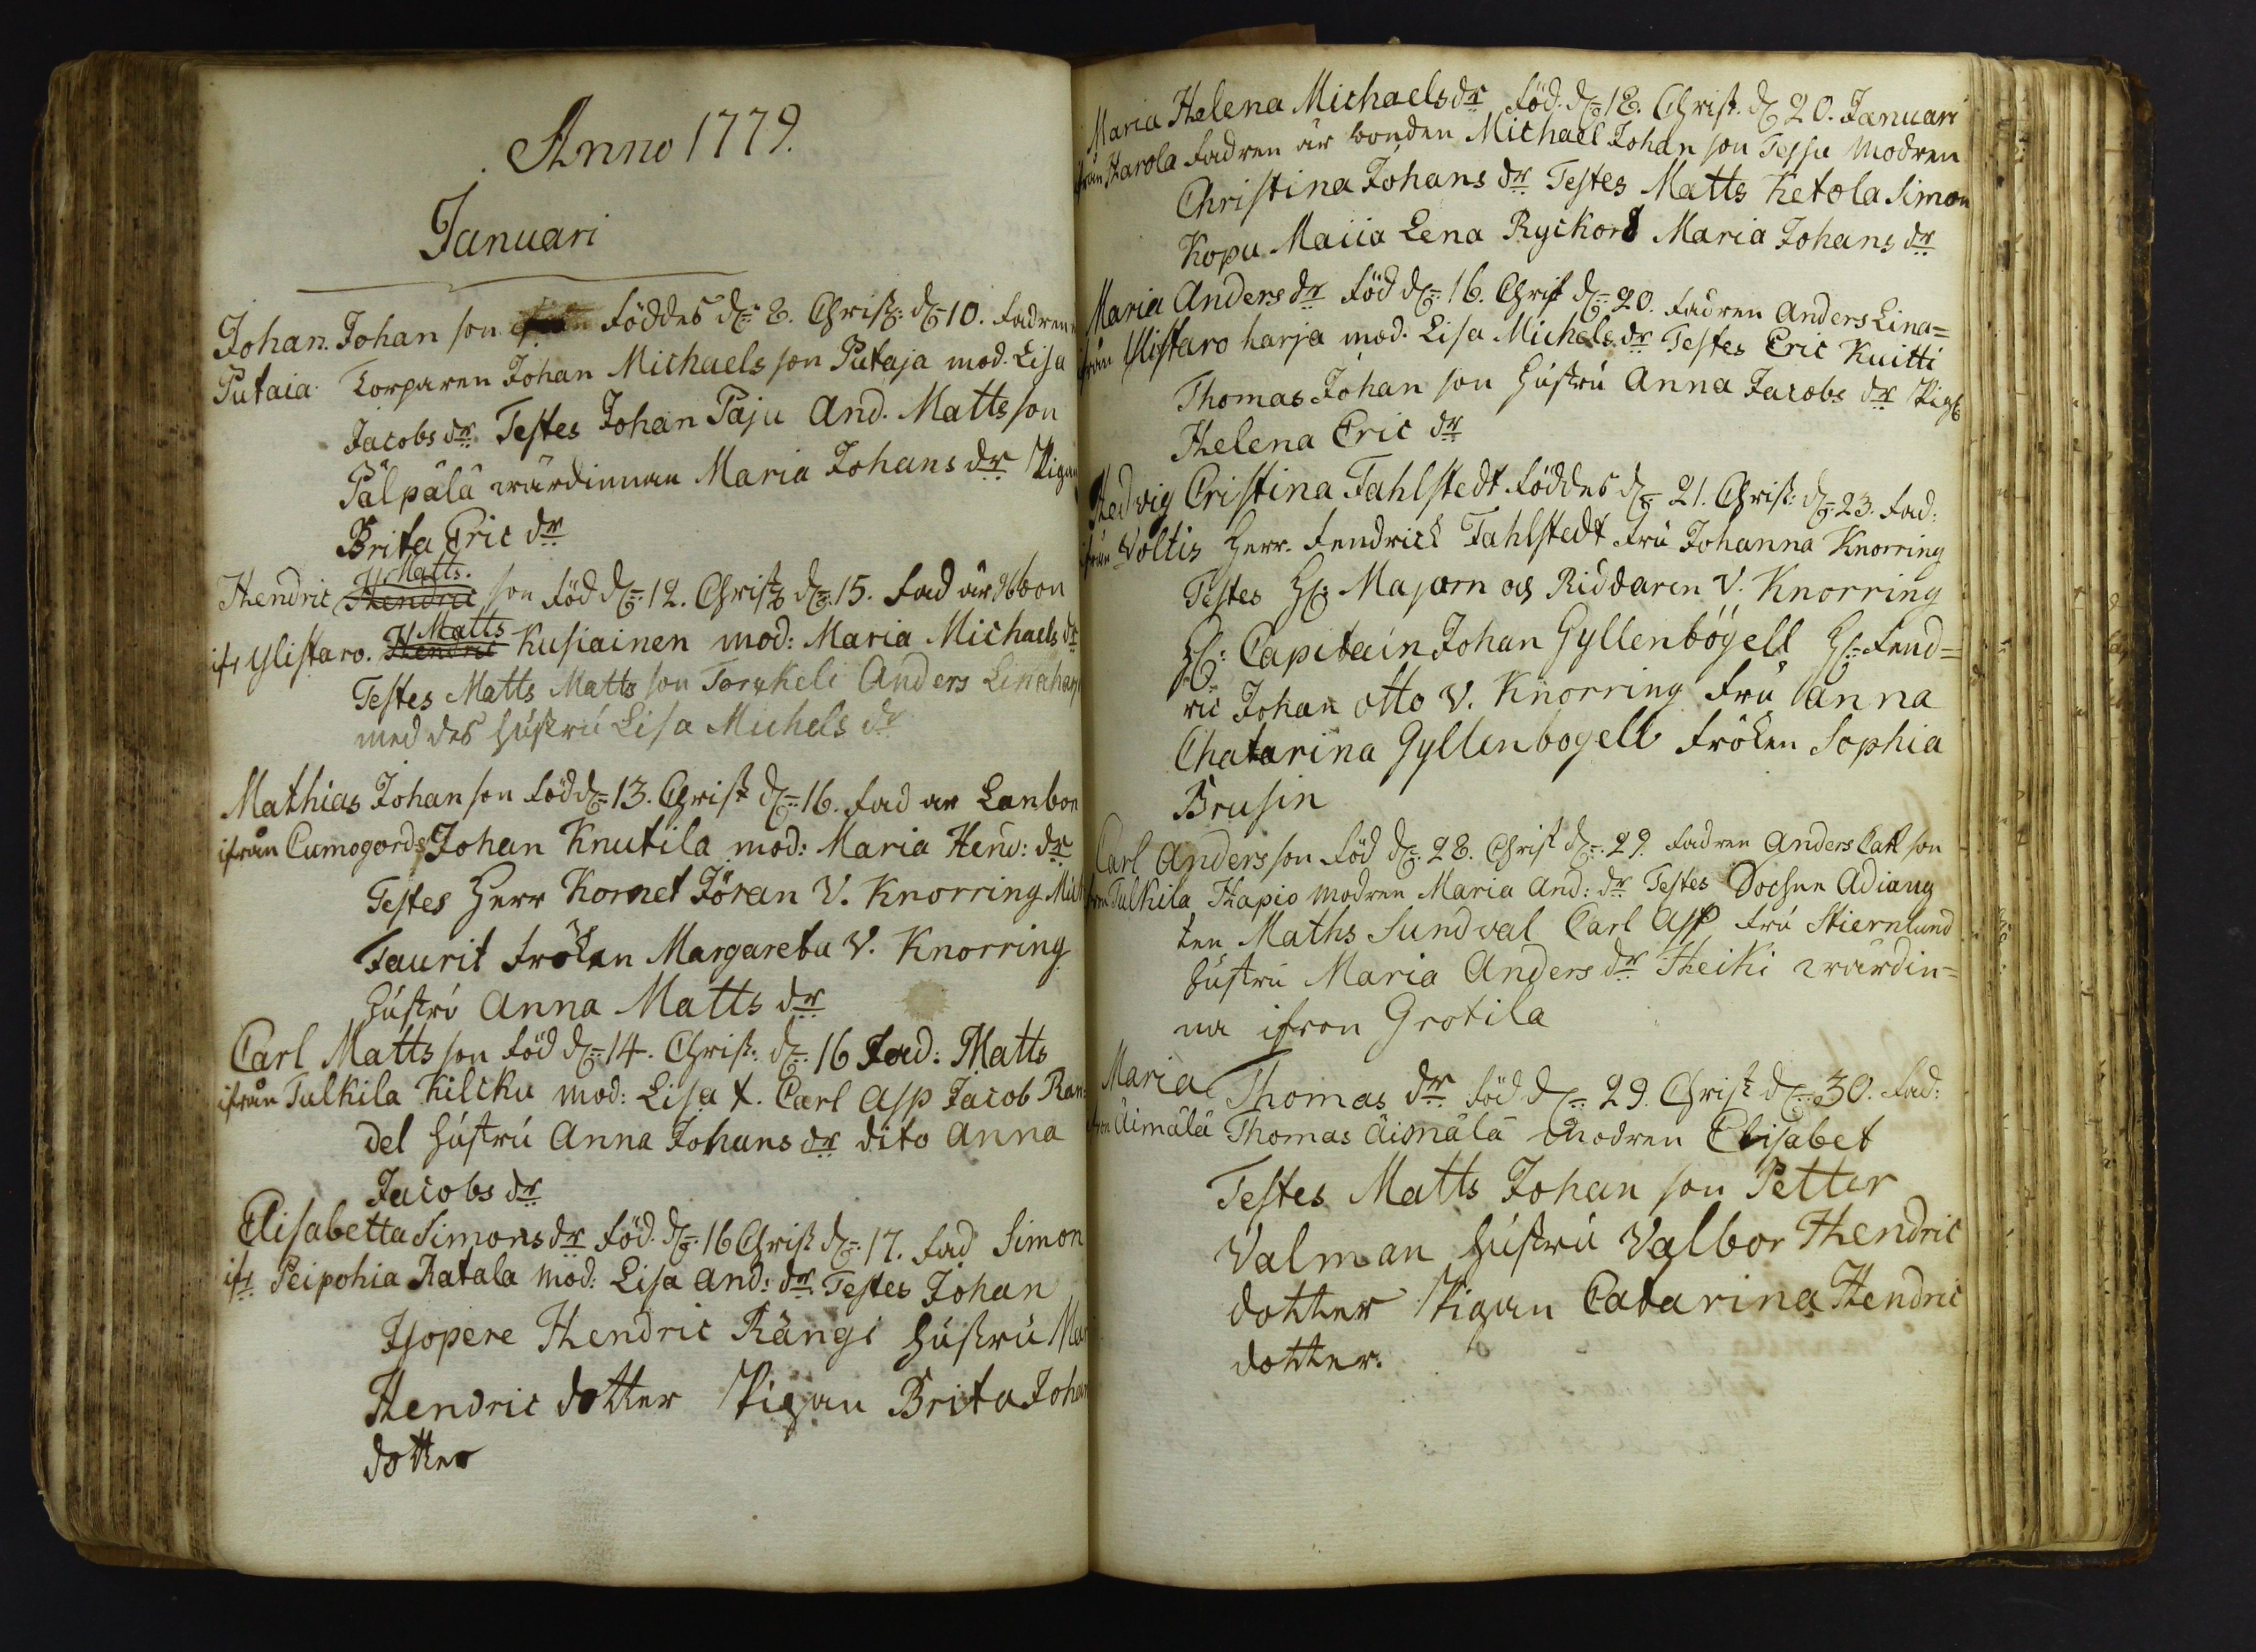 Anno 1779.
Januari
Johan Johan son föddes d: 8. Christ: d: 10. fadren
Putaia Torparen Johan Michaels son Putaja mod. Lisa
Jacobs dr. Testes Johan Paju And. Matts son
Pälpälä wärdinnan Maria Johans dr Pigan
Brita Eric dr
Matts.
Hendric Hendric son född d: 12. Christ d: 15. fad är bon
Matts
ifr Ylistaro. Hendric Kusiainen mod: Maria Michaels dr
Testes Matts Matts son Torkkeli Anders Linaharj
med des hustru Lisa Michels dr
Mathias Johan son född d: 13. Christ d: 16. fad är Lanbon
ifrån Cumogords Johan Knutila mod: Maria Henr: dr
Testes Herr Kornet Jöran V. Knorring Mich
Taurit fröken Margareta V. Knorring
hustru Anna Matts dr
Carl Matts son föd d: 14. Christ: d: 16 Fad: Matts
ifrån Tulkila Kilcku mod: Lisa t. Carl Asp Jacob Ran-
del hustru Anna Johans dr dito Anna
Jacobs dr
Elisabetta Simons dr föd. d: 16 Christ d: 17. fad Simon
ifr Peipohia Ratala mod: Lisa And: dr. Testes Johan
Isopere Hendric Rängi hustru Mar
Hendric dotter Pigan Brita Johan
dotter
Maria Helena Michaels dr föd: d: 18. Christ. d: 20. Januari
från Harola fadren är bonden Michael Johan son Tessu modren
Christina Johans dr Testes Matts Ketola Simon
Kopu Maiia Lena Ryckord Maria Johans dr
Maria Anders dr föd d: 16. Christ d: 20. fadren Anders Lina=
från Ylistaro harja mod. Lisa Michels dr Testes Eric Kuitti
Thomas Johan son hustru Anna Jacobs dr Pig
Helena Eric dr
Hedvig Cristina Fahlstedt föddes d: 21. Christ: d: 23. fad:
ifrån Voltis Herr. Fendrick Fahlstedt fru Johanna Knorring
Testes H: Majorn och Riddaren V. Knorring
H: Capitain Johan Gyllenbögell H: Fend=
ric Johan Otto V. Knorring fru Anna
Chatarina Gyllenbogell fröken Sophia
Brusin
Carl Anders son föd d: 28. Christ d: 29. fadren Anders Carl son
från Tulkila Hapio modren Maria And: dr Testes Sochne Adiung
ten Maths Sundval Carl Asp fru Stiernlund
hustru Maria Anders dr Heiki wärdin=
na ifron Grotila
Maria Thomas dr föd d: 29. Christ d: 30. fad:
fron Äimälä Thomas Äimälä modren Elisabet
Testes Matts Johan son Petter
Valman hustru Valbor Hendric
dotter Pigan Catarina Hendric
dotter.